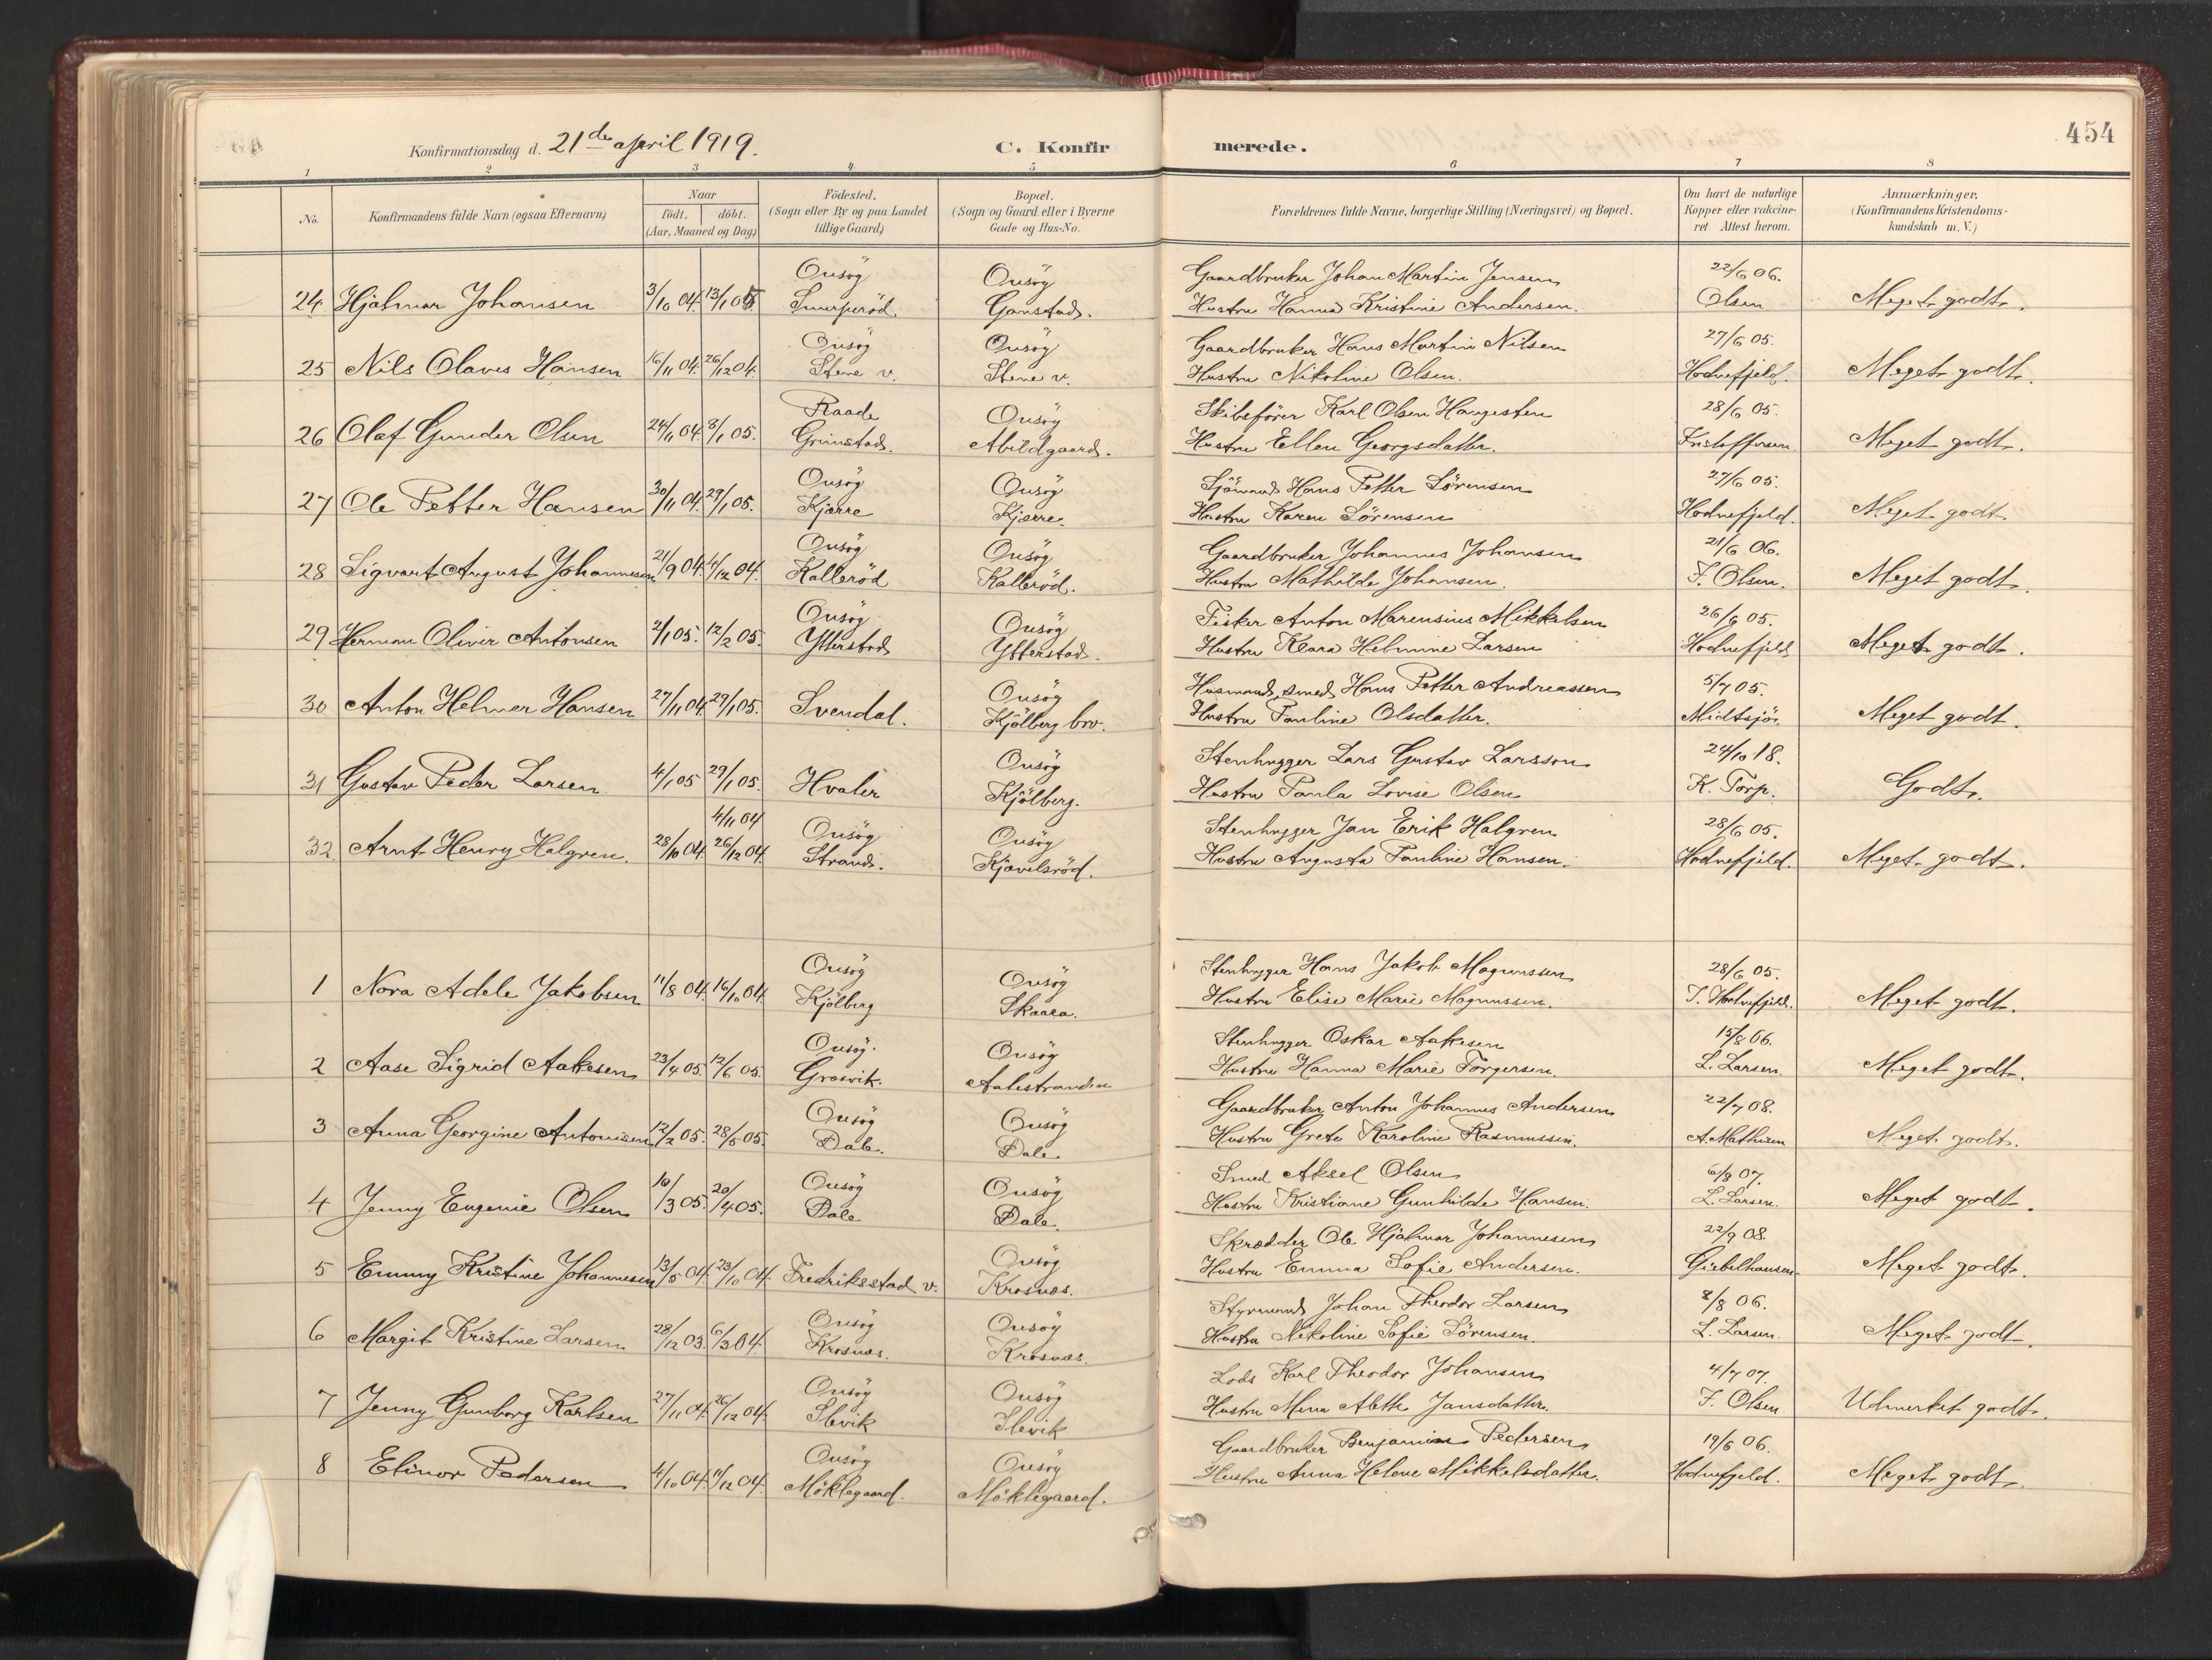 454
Konfirmationsdag d. 21de april 1919.
C. Konfirmerede.
1 2 3 4 5 6 7 8
No.
Konfirmandens fulde Navn (ogsaa Efternavn)
Naar
födt. döbt.
(Aar, Maaned og Dag)
Födested.
(Sogn eller By og paa Landet
tillige Gaard)
Bopæl.
(Sogn og Gaard eller i Byerne
Gade og Hus-No.
Forældrenes fulde Navne, borgerlige Stilling (Næringsvei) og Bopæl.
Om havt de naturlige
Kopper eller vakcine-
ret Attest herom.
Anmærkninger.
(Konfirmandens Kristendoms-
kundskab m. V.)
Onsøy Onsøy Gaardbruker Johan Martin Jensen 22/6 06.
24 Hjalmar Johansen 3/10 04. 13/1 05. Ganstad. Hustru Hanna Kristine Andersen. Olsen Meget godt.
Onsøy Onsøy Gaardbruker Hans Martin Nilsen 27/6 05.
25 Nils Olaves Hansen 16/11 04. 26/12 04. Stene v. Stene v. Hustru Nikoline Olsen. Hodnefjeld. Meget godt.
Raade Onsøy Skibsfører Karl Olsen Haugesten 28/6 05.
26 Olaf Gunder Olsen 24/11 04. 8/1 05. Grimstad. Abildgaard. Hustru Ellen Georgsdatter. Kristoffersen Meget godt.
Onsøy Onsøy Sjömand Hans Petter Sörensen 27/6 05.
27 Ole Petter Hansen 30/11 04. 29/1 05. Kjærre Kjærre. Hustru Karen Sörensen Hodnefjeld. Meget godt.
Onsøy Onsøy Gaardbruker Johannes Johansen 21/6 06.
28 Sigvart August Johannesen 21/9 04. 4/12 04. Kallerød Kallerød. Hustru Mathilde Johansen. F. Olsen. Meget godt.
Onsøy Onsøy Fisker Anton Marensius Mikkelsen 26/6 05.
29 Herman Oliver Antonsen 2/1 05. 12/2 05. Ytterstad Ytterstad. Hustru Klara Helmine Larsen Hodnefjeld Meget godt.
Onsøy Husmand, smed Hans Petter Andreassen 5/7 05.
30 Anton Helmer Hansen 27/11 04. 29/1 05. Svendal. Kjölberg bro. Hustru Pauline Olsdatter. Midtsjö. Meget godt.
Onsøy Stenhugger Lars Gustav Larsson 24/10 18.
31 Gustav Peder Larsen 4/1 05 29/1 05. Hvaler Kjölberg. Hustru Paula Lovise Olsen K. Torp. Godt.
4/11 04 Onsøy Onsøy Stenhugger Jan Erik Halgren 28/6 05.
32. Arnt Henry Halgren. 28/10 04. 26/12 04. Strand. Kjævelsrød. Hustru Augusta Pauline Hansen. Hodnefjeld. Meget godt.
Onsøy Onsøy Stenhugger Hans Jakob Magnussen 28/6 05.
1 Nora Adele Jakobsen 11/8 04. 16/10 04. Kjölberg Skaara. Hustru Elise Marie Magnussen. T. Hodnefjeld. Meget godt.
Onsøy. Onsøy Stenhugger Oskar Aakesen 15/8 06.
2 Aase Sigrid Aakesen 23/4 05. 12/6 05. Gresvik. Aalestranden Hustru Hanna Marie Torgersen. L. Larsen. Meget godt.
Onsøy Onsøy Gaardbruker Anton Johannes Andersen 22/7 08.
3 Anna Georgine Antonisen 12/2 05. 28/5 05. Dale. Dale Hustru Grete Karoline Rasmussen. A. Mathisen Meget godt.
Onsøy Onsøy Smed Aksel Olsen 6/8 07.
4 Jenny Eugenie Olsen 10/3 05. 20/4 05. Dale Dale. Hustru Kristiane Gunhilde Hansen. L. Larsen. Meget godt.
Onsøy Skrædder Ole Hjalmar Johannesen 22/9 08.
5 Emmy Kristine Johannesen 13/5 04. 23/10 04. Fredriksstad v. Krosnæs. Hustru Emma Sofie Andersen. Giebelhausen. Meget godt.
Onsøy Onsøy Styrmand Johan Theodor Larsen 8/8 06.
6 Margit Kristine Larsen 28/12 03. 6/3 04. Krosnæs. Krosnæs. Hustru Nikoline Sofie Sörensen. L. Larsen. Meget godt.
Onsøy Onsøy Lods Karl Theodor Johansen 4/7 07.
7 Jenny Gunborg Karlsen 27/11 04. 26/12 04. Slevik Slevik Hustru Mina Alethe Jansdatter. F. Olsen Udmerket godt.
Onsøy Onsøy Gaardbruker Benjamin Pedersen 19/6 06.
8 Elinor Pedersen 4/10 04. 11/12 04. Møklegaard. Møklegaard. Hustru Anna Helene Mikkelsdatter. Hodnefjeld. Meget godt.